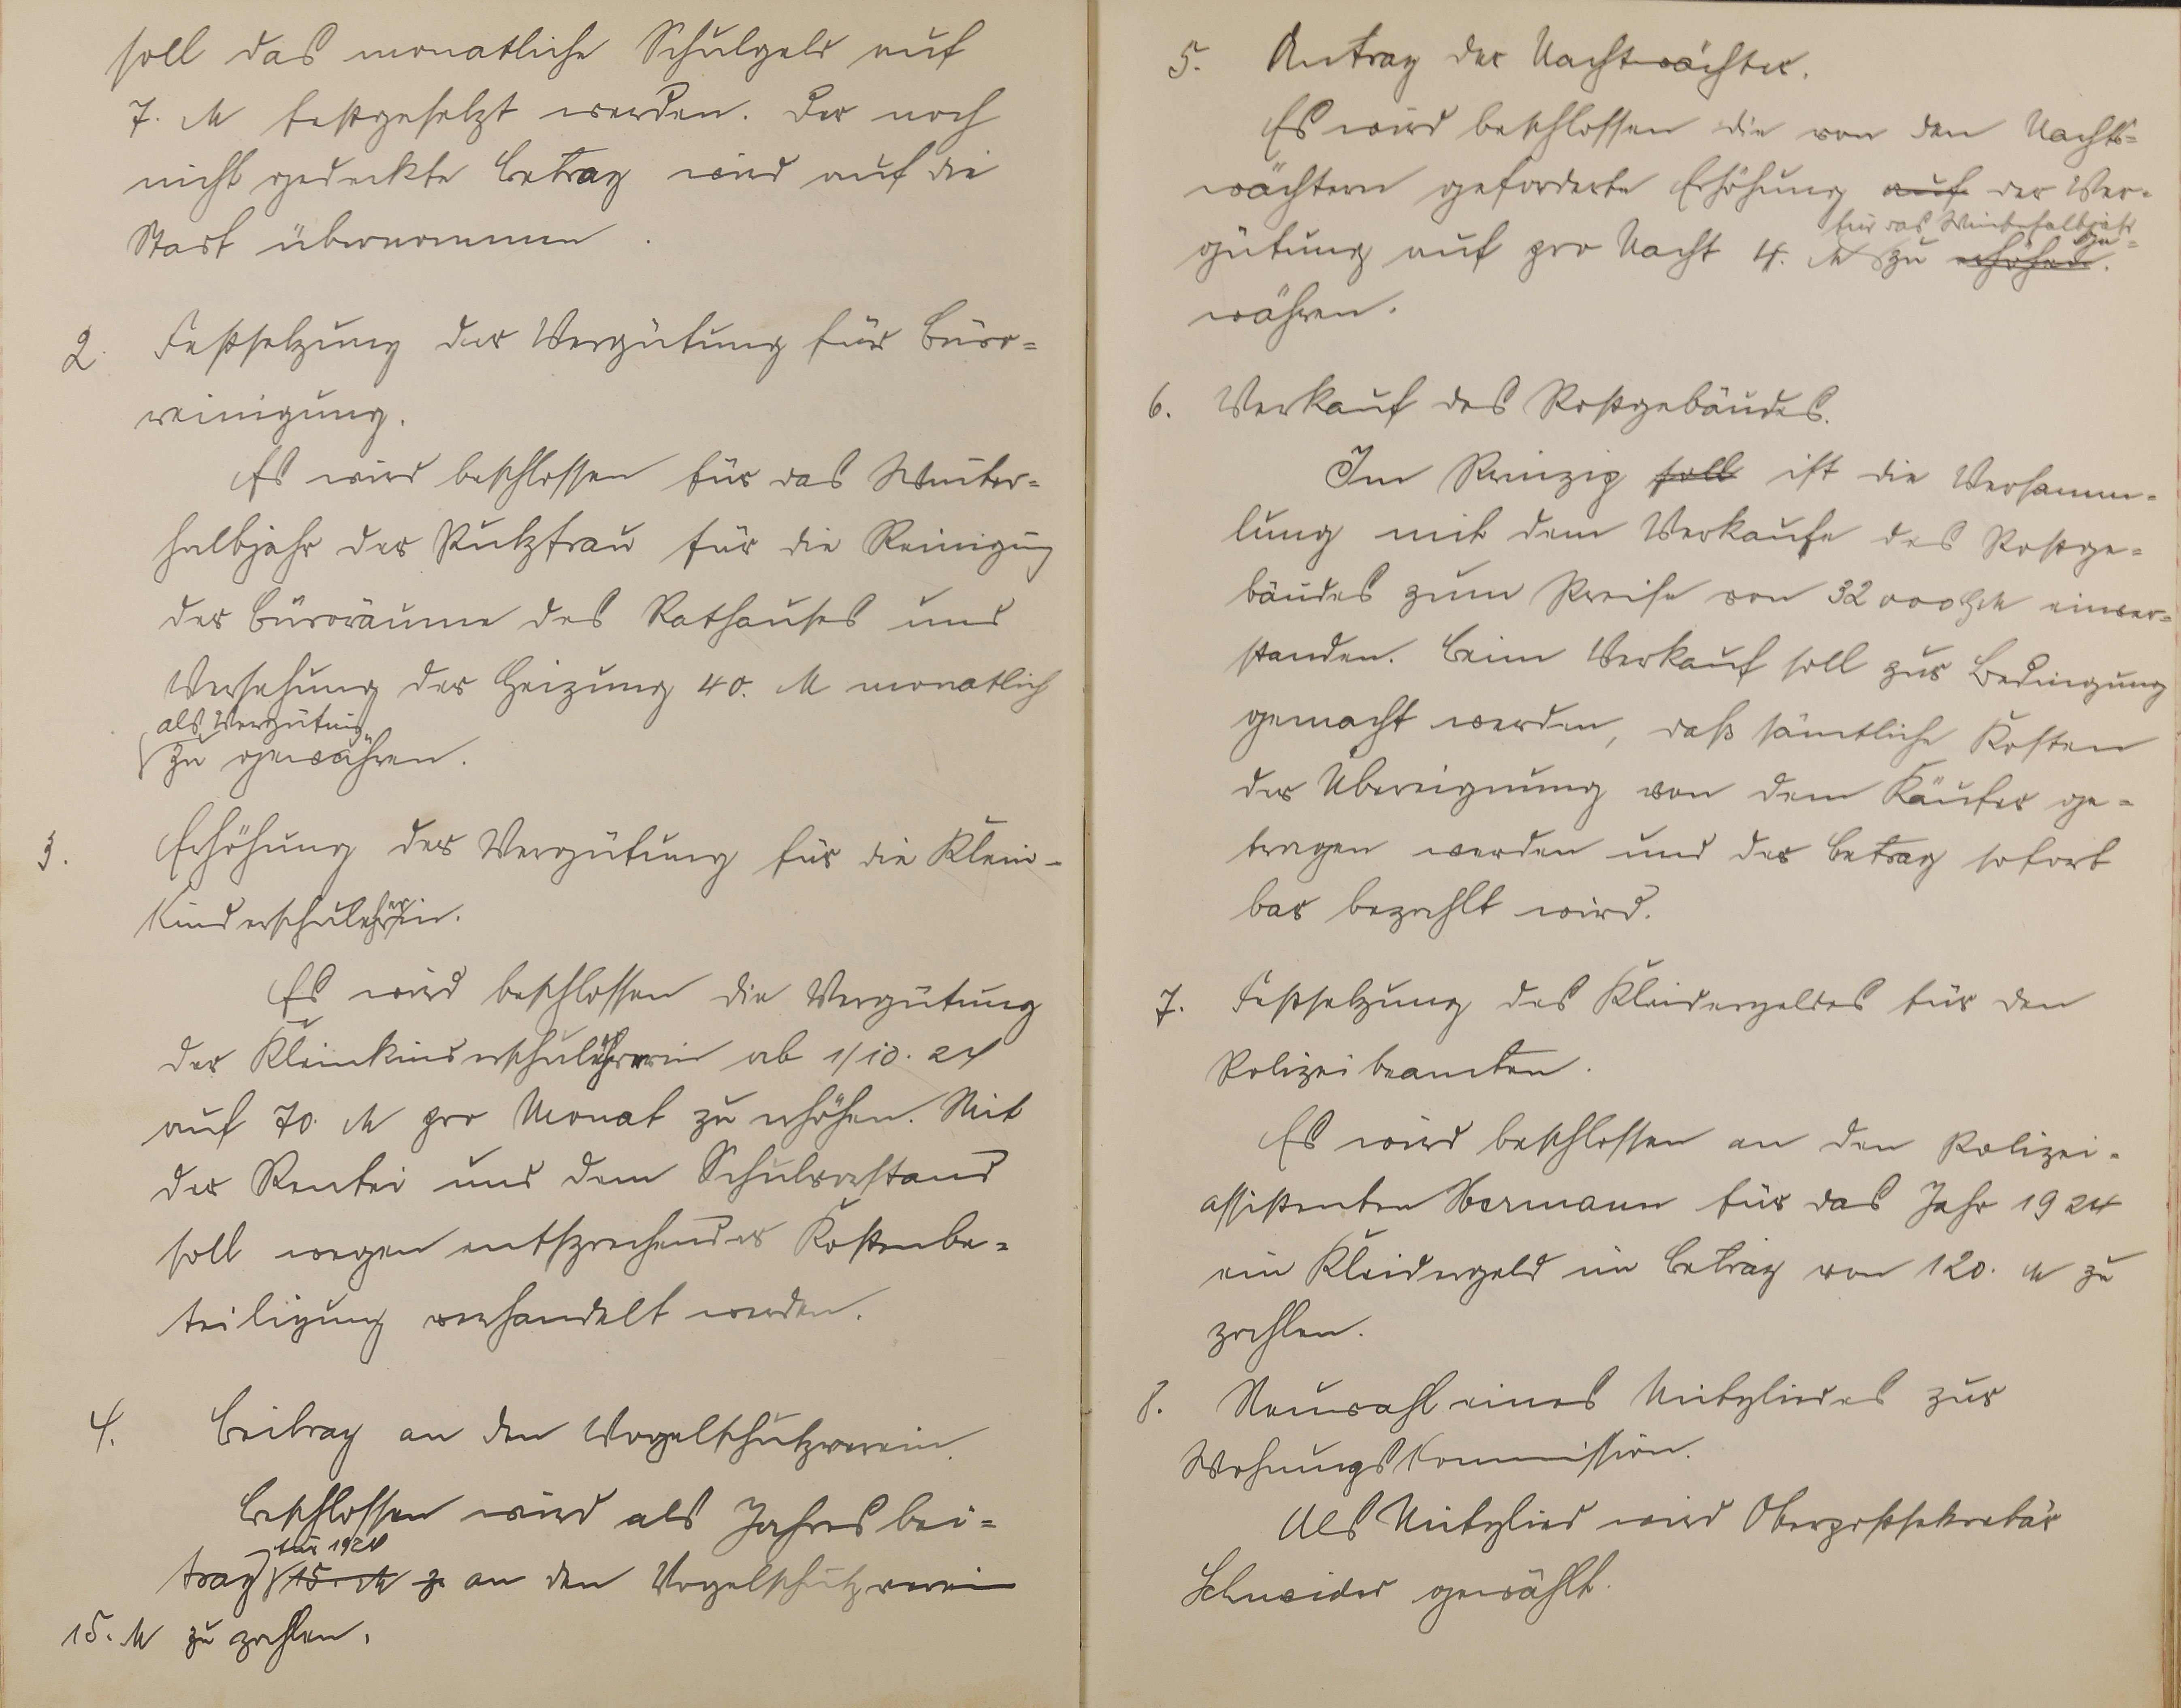 soll das monatliche Schulgeld auf
7. M festgesetzt werden. Der noch
nicht gedeckte Betrag wird auf die
Stadt übernommen.
2. Festsetzung der Vergütung für Büro=
reinigung.
Es wird beschlossen für das Winter=
halbjahr der Putzfrau für die Reinigung
der Büroräume des Rathauses und
Versehung der Heizung 40. M monatlich
als Vergütung
zu gewähren.
3. Erhöhung der Vergütung für die Klein-
Kinderschullehrerin.
Es wird beschlossen die Vergütung
der Kleinkinderschullehrerin ab 1/10. 24
auf 70. M pro Monat zu erhöhen. Mit
der Rentei und dem Schulvorstand
soll wegen entsprechender Kostenbe=
teiligung verhandelt werden.
4. Beitrag an den Vogelschutzverein.
Beschlossen wird als Jahresbei=
für 1924
trag 15. M z an den Vogelschutzverein
15. M zu zahlen.
5. Antrag der Nachtwächter.
Es wird beschlossen die von den Nacht=
wächtern geforderte Erhöhung auf der Ver=
für das Winterhalbjahr
gütung auf pro Nacht 4. M zu erhöhen. ge=
währen.
6. Verkauf des Postgebäudes.
Im Prinzip soll ist die Versamm=
lung mit dem Verkaufe des Postge=
bäudes zum Preise von 32000 GM einver=
standen. Beim Verkauf soll zur Bedingung
gemacht werden, daß sämtliche Kosten
der Übereignung von dem Käufer ge=
tragen werden und der Betrag sofort
bar bezahlt wird.
7. Festsetzung des Kleidergeldes für den
Polizeibeamten.
Es wird beschlossen an den Polizei=
assistenten Hermann für das Jahr 1924
ein Kleidergeld im Betrag von 120. M zu
zahlen.
8. Neuwahl eines Mitgliedes zur
WohnungsKommission.
Als Mitglied wird Oberpostsekretär
Schneider gewählt.